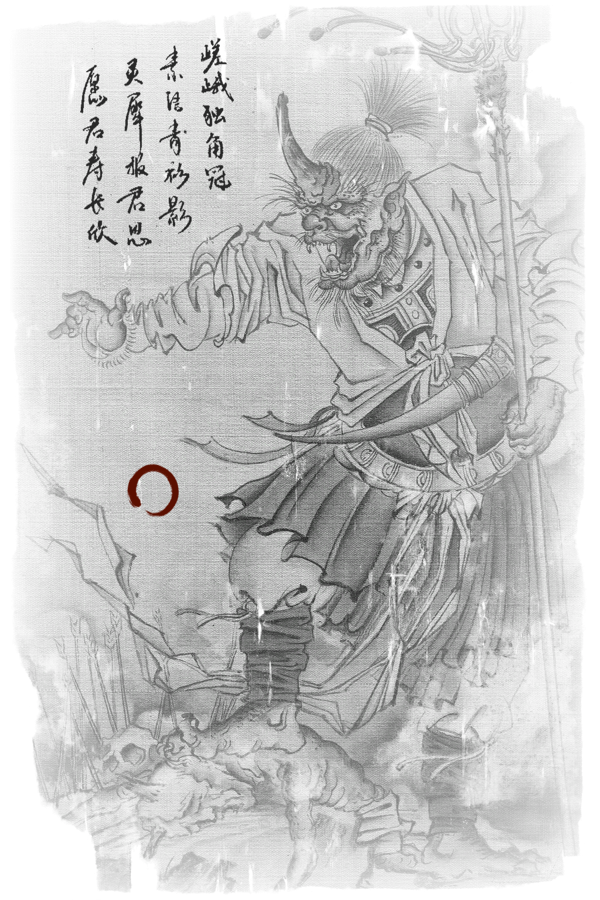 嵯峨独角冠
素法青衫影
灵犀报君恩
愿君寿长欣